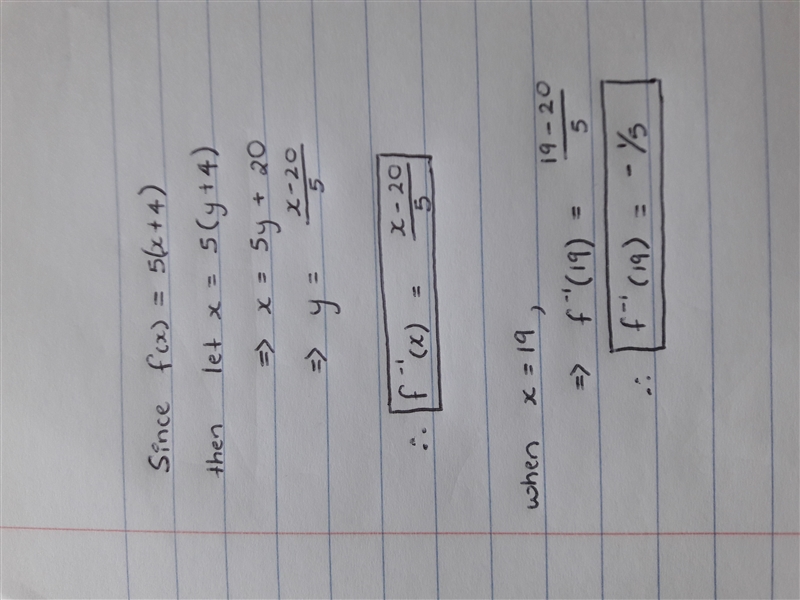 Since f(x) = 5(x+4)
then let x = 5(y+4)
=> x = 5y + 20
=> y = x-20/5
∴ f⁻¹(x) = x-20/5
when x = 19,
=> f⁻¹(19) = 19-20/5
∴ f⁻¹(19) = - 1/5